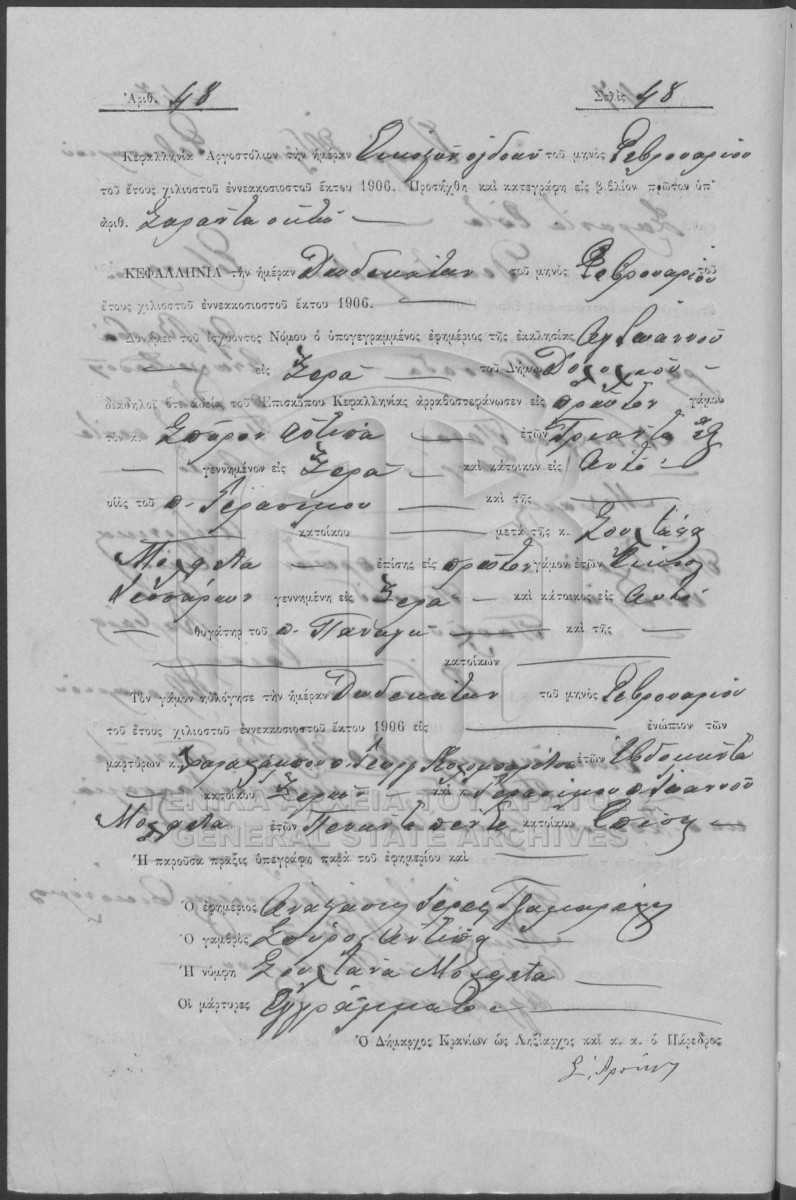 Ἀριθ. 48 Σελὶς 48
Κεφαλληνία Ἀργοστόλιον τὴν ἡμέραν Εικοστην ογδοην τοῦ μηνὸς Φεβρουαρίου
τοῦ ἔτους χιλιοστοῦ ἐννεακοσιοστοῦ ἕκτου 1906. Προσήχθη καὶ κατεγράφη εἰς βιβλίον πρῶτον ὑπ'
ἀριθ. Σαράντα οκτώ
ΚΕΦΑΛΛΗΝΙΑ τὴν ἡμέραν Δωδεκάτην τοῦ μηνὸς Φεβρουαρίου τοῦ
ἔτους χιλιοστοῦ ἐννεακοσιοστοῦ ἕκτου 1906.
Δυνάμει τοῦ ἰσχύοντος Νόμου ὁ ὑπογεγραμμένος ἐφημέριος τῆς ἐκκλησίας Αγ Ιωαννου
εἰς τοῦ Δήμου
διαδηλοῖ ὅτι ἀδείᾳ τοῦ Ἐπισκόπου Κεφαλληνίας ἀρραβοστεφάνωσεν εἰς πρωτον γάμον
τὸν κ. Σπύρον Αντιπα ἐτῶν Τριαντα
γεννημένον εἰς καὶ κάτοικον εἰς Αυτό
υἱὸς τοῦ π. Γερασιμου καὶ τῆς
κατοίκου μετὰ τῆς κ.
Μοσχετα ἐπίσης εἰς πρωτον γάμον ἐτῶν Εικοσι
Τεσσαρων γεννημένη εἰς καὶ κάτοικος εἰς Αυτό
θυγάτηρ τοῦ π. Παναγη καὶ τῆς
κατοίκων
Τὸν γάμον ηὐλόγησε τὴν ἡμέραν Δωδεκάτην τοῦ μηνὸς Φεβρουαρίου
τοῦ ἔτους χιλιοστοῦ ἐννεακοσιοστοῦ ἕκτου 1906 εἰς ἐνώπιον τῶν
μαρτύρων κ. Χαραλάμπου π. Γεωργ ἐτῶν Εβδομηντα
κατοίκου καὶ Γερασιμου π. Ιωαννου
Μοσχετα ἐτῶν Πενηντα πεντε κατοίκου Επίσης
ΓΕΝΙΚΑ ΑΡΧΕΙΑ ΤΟΥ ΚΡΑΤΟΥΣ
GENERAL STATE ARCHIVES
Ἡ παροῦσα πρᾶξις ὑπεγράφη παρὰ τοῦ ἐφημερίου καὶ
Ὁ ἐφημέριος Αναστάσιος Ιερεύς
Ὁ γαμβρὸς Σπύρος Αντιπας
Ἡ νύμφη Μοσχετα
Οἱ μάρτυρες Αγράμματοι
Ὁ Δήμαρχος Κρανίων ὡς Ληξίαρχος καὶ κ. κ. ὁ Πάρεδρος